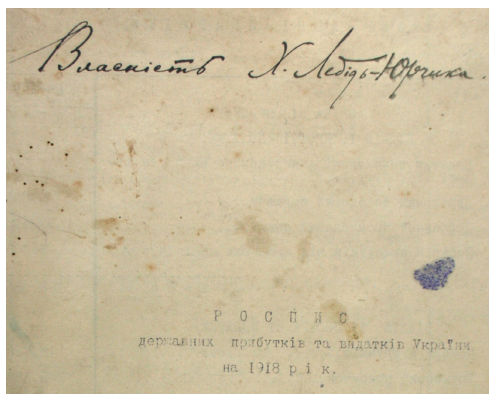 Власність Х. Лебідь-Юрчика.
Р О С П И С
державних прибутків та видатків України
на 1918 р і к.